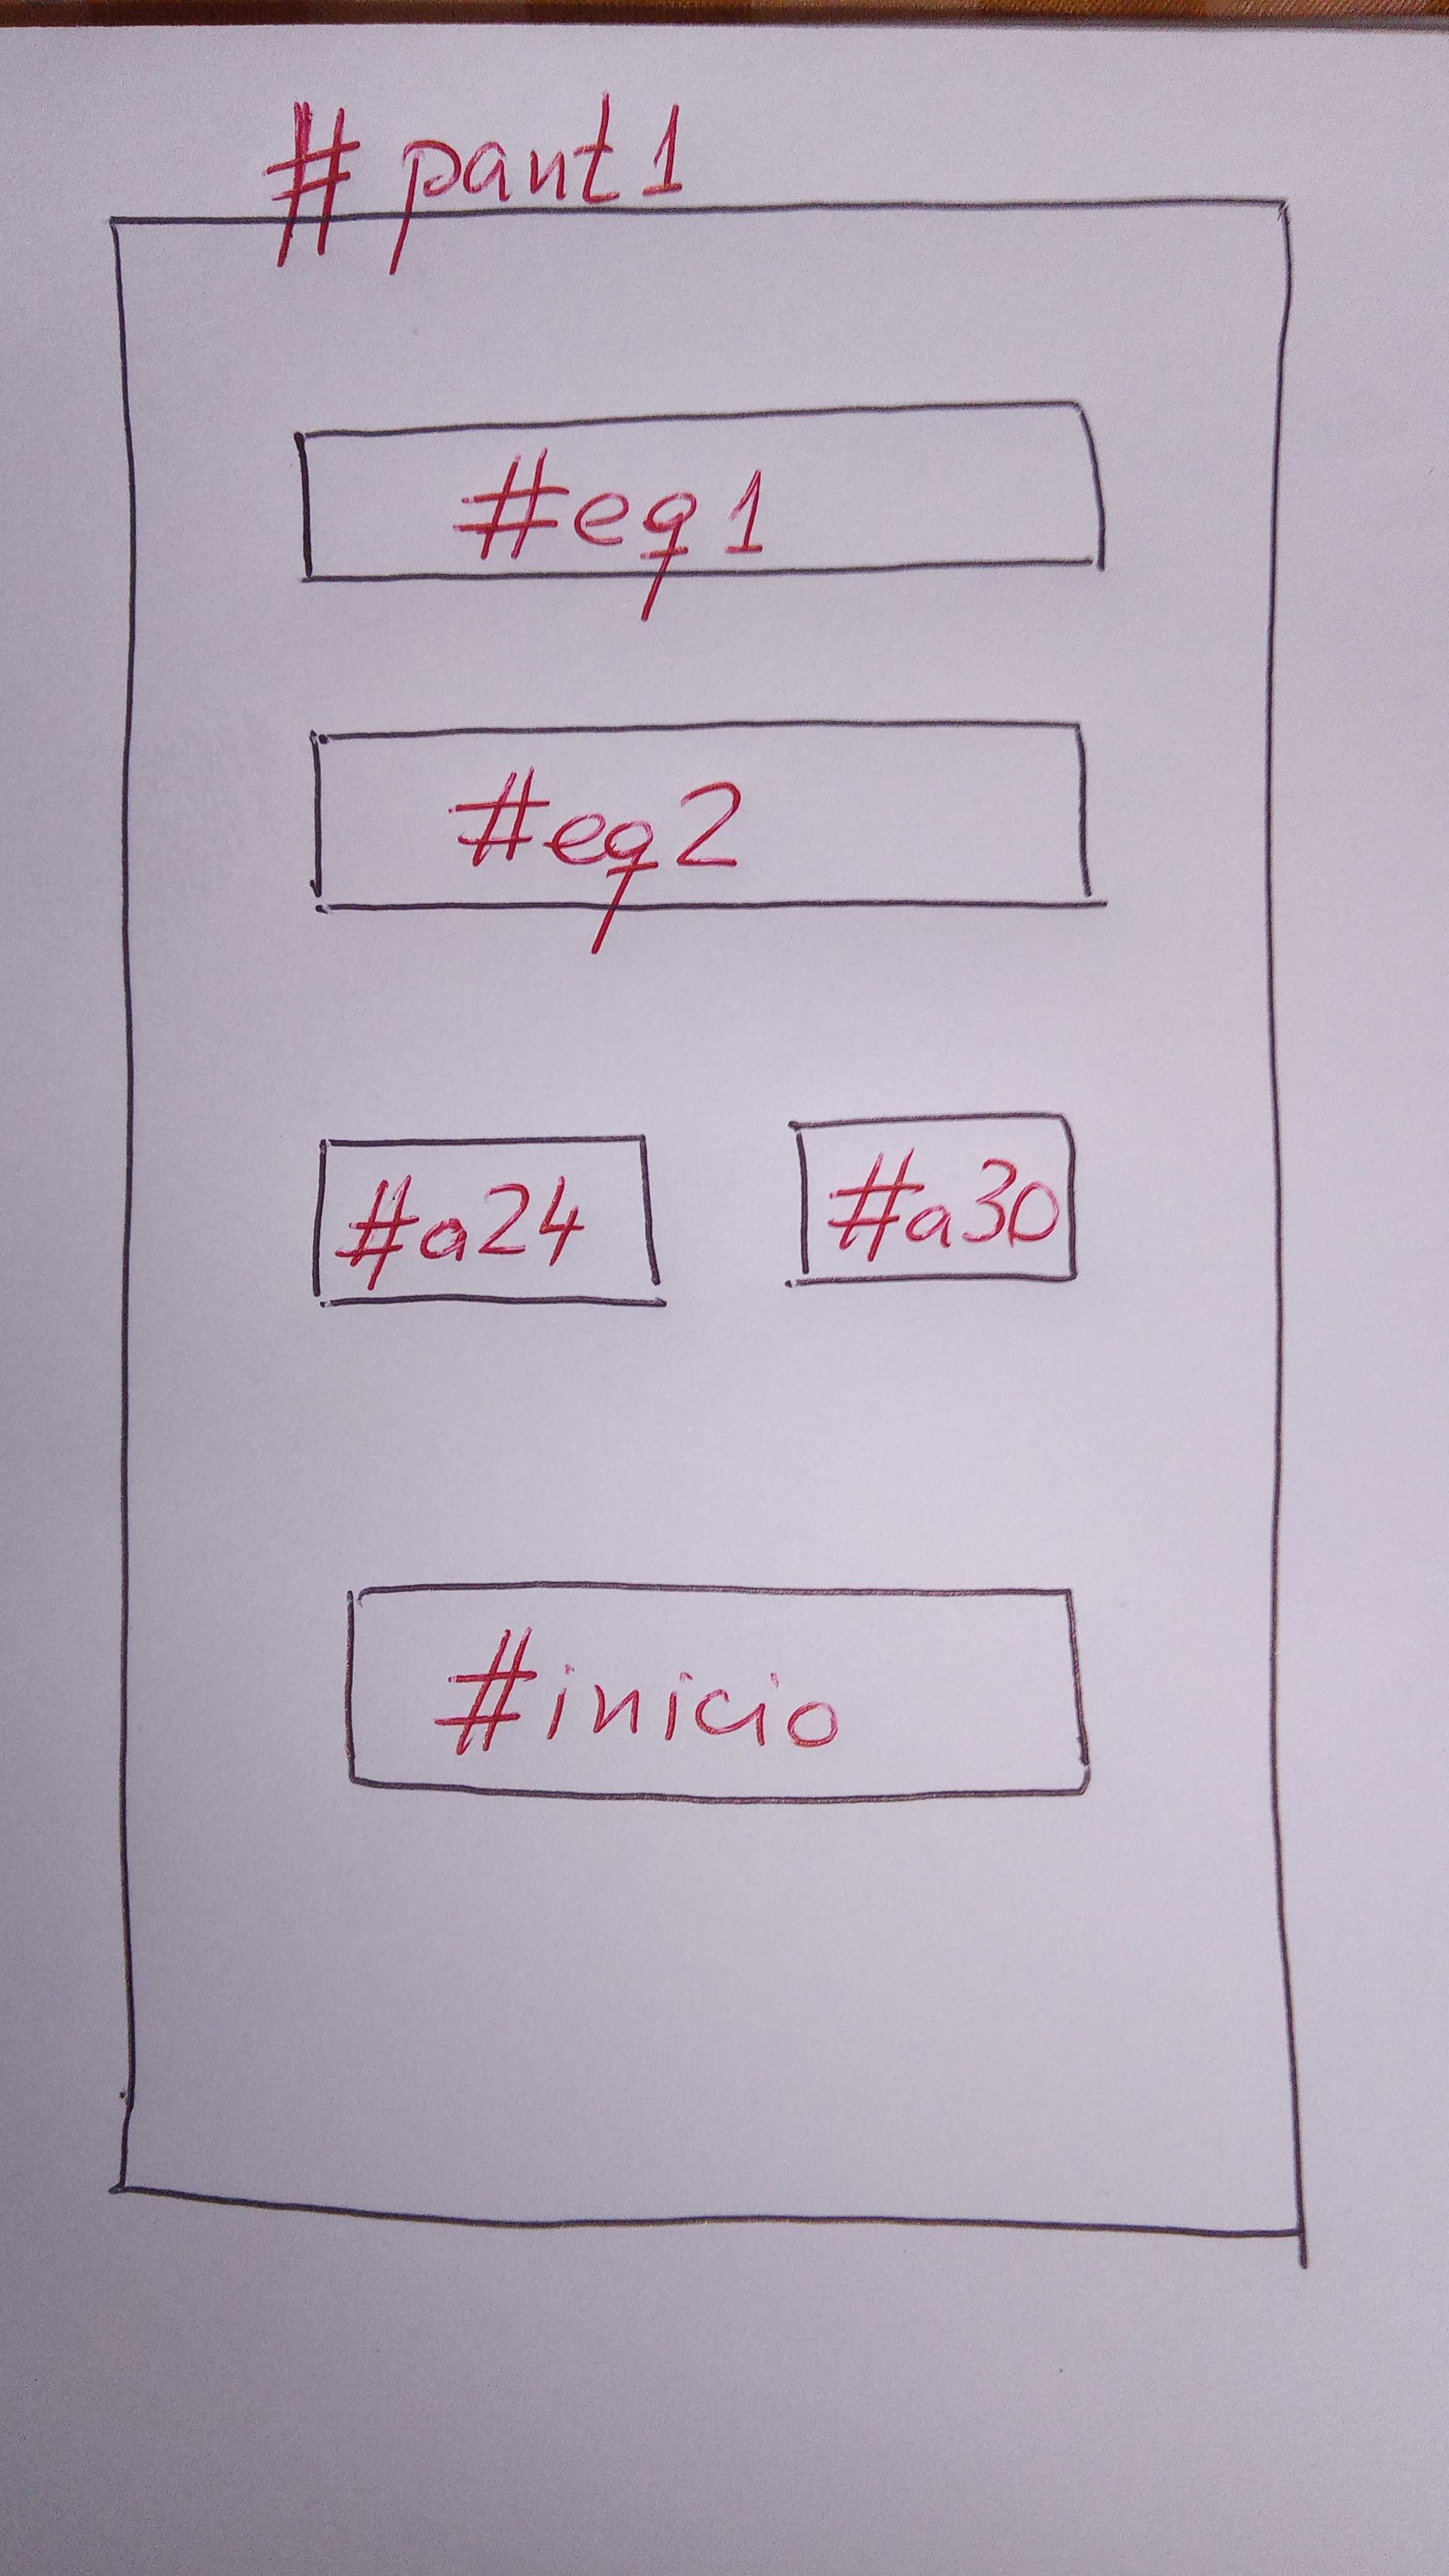 # pant1
#eq1
#eq2
#a24 #a30
#inicio